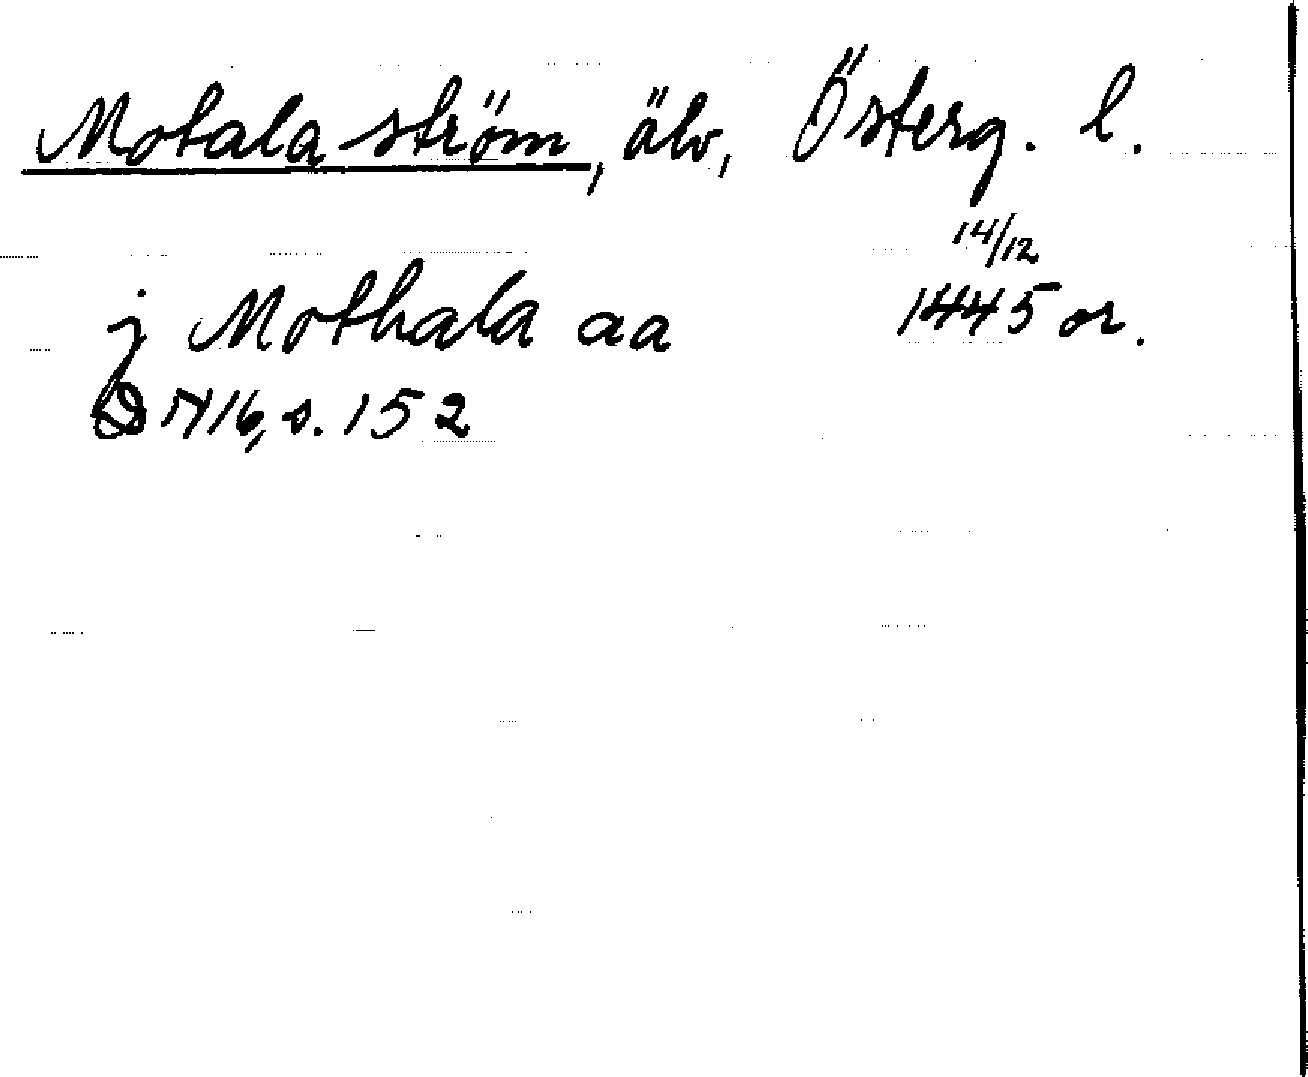 Motala ström, älv, Österg. l.
j Mothala aa 14/12 1445 or.
DN 16, s. 152